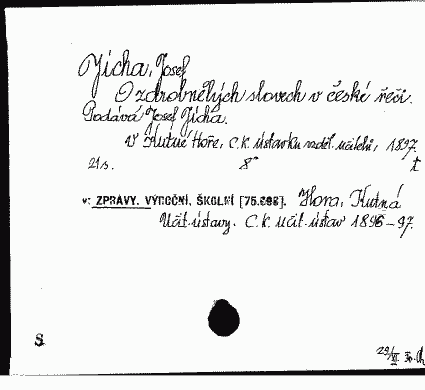 Jícha, Josef
O zdrobnělých slovech v české řeči.
Podává Josef Jícha.
V Kutné Hoře, C. k. ústav ku vzděl. učitelů, 1897.
21 s. 8° t
v: ZPRÁVY. VÝROČNÍ, ŠKOLNÍ [75.898]. Hora, Kutná
Učit. ústavy. C. k. učit. ústav 1896-97.
S